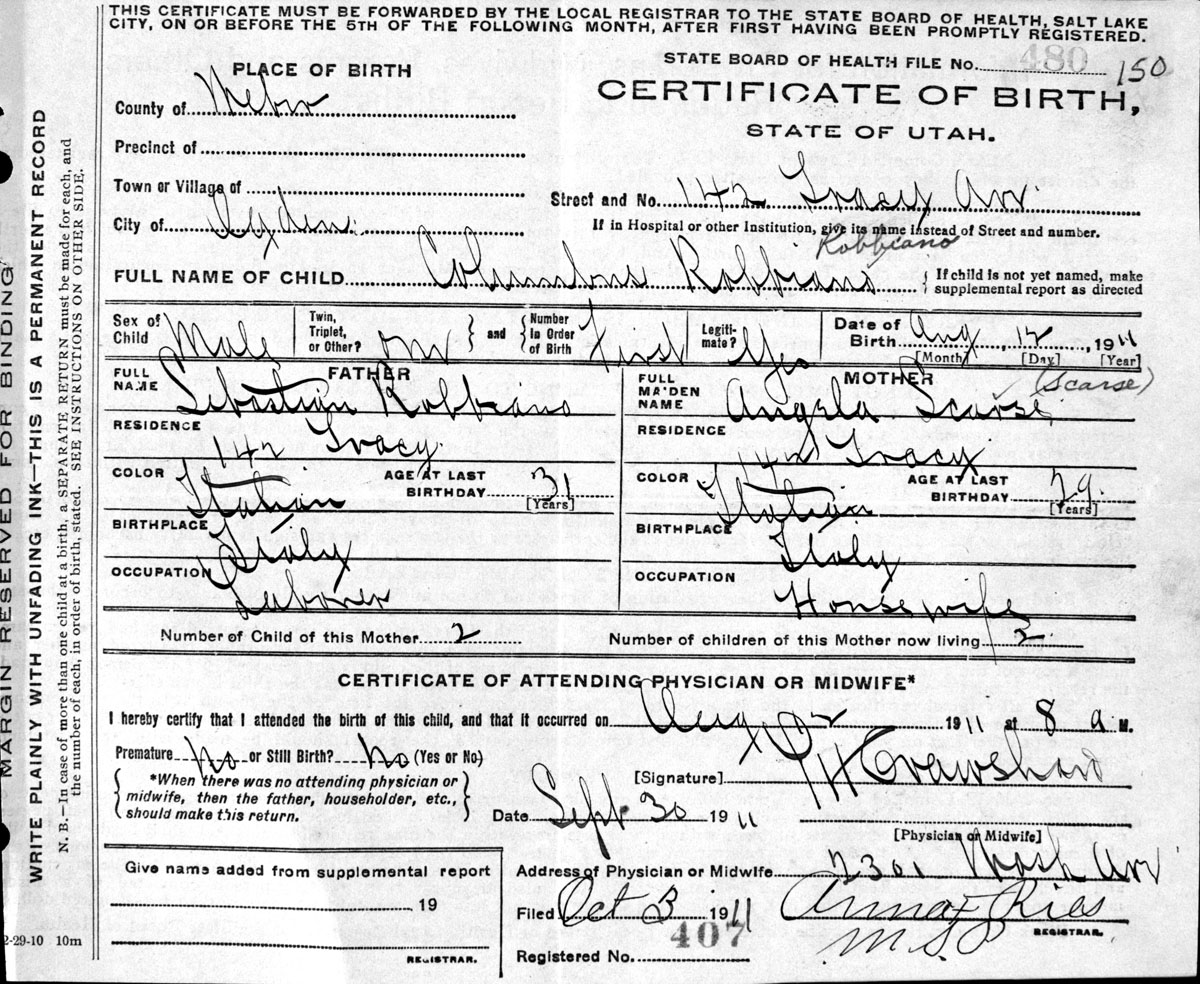 THIS CERTIFICATE MUST BE FORWARDED BY THE LOCAL REGISTRAR TO THE STATE BOARD OF HEALTH, SALT LAKE
CITY, ON OR BEFORE THE 5TH OF THE FOLLOWING MONTH, AFTER FIRST HAVING BEEN PROMPTLY REGISTERED.
MARGIN RESERVED FOR BINDING
WRITE PLAINLY WITH UNFADING INK—THIS IS A PERMANENT RECORD
N. B.—In case of more than one child at a birth, a SEPARATE RETURN must be made for each, and
the number of each, in order of birth, stated. SEE INSTRUCTIONS ON OTHER SIDE.
PLACE OF BIRTH
STATE BOARD OF HEALTH FILE No. 480 150
County of Weber
CERTIFICATE OF BIRTH,
STATE OF UTAH.
Precinct of
Town or Village of
Street and No. 142 Tracy Av
City of Ogden
If in Hospital or other Institution, give its name instead of Street and number.
Robbiano
FULL NAME OF CHILD Columbus Robbiano { If child is not yet named, make
supplemental report as directed
Sex of Child Male
Twin, Triplet, or Other? } and { Number In Order of Birth First
Legiti-mate? Yes
Date of Birth Aug 12, 1911
[Month] [Day] [Year]
FATHER
FULL NAME Sebastian Robbiano
MOTHER (Scarse)
FULL MAIDEN NAME Angela Scarse
RESIDENCE 142 Tracy.
RESIDENCE 142 Tracy
COLOR Italian AGE AT LAST BIRTHDAY 31 [Years]
COLOR Italian AGE AT LAST BIRTHDAY 29. [Years]
BIRTHPLACE Italy
BIRTHPLACE Italy
OCCUPATION Laborer
OCCUPATION Housewife
Number of Child of this Mother 2 Number of children of this Mother now living 2
CERTIFICATE OF ATTENDING PHYSICIAN OR MIDWIFE*
I hereby certify that I attended the birth of this child, and that it occurred on Aug 12 1911 at 8 a M.
Premature No or Still Birth? No (Yes or No)
[Signature] Crawshaw
{ *When there was no attending physician or
midwife, then the father, householder, etc.,
should make this return. }
Date Sept 30 1911
[Physician or Midwife]
Give name added from supplemental report
19
REGISTRAR.
Address of Physician or Midwife 2301 Wash Av
Filed Oct 3 1911 Anna F Ries
M.S.P
REGISTRAR.
Registered No. 407
2-29-10 10m